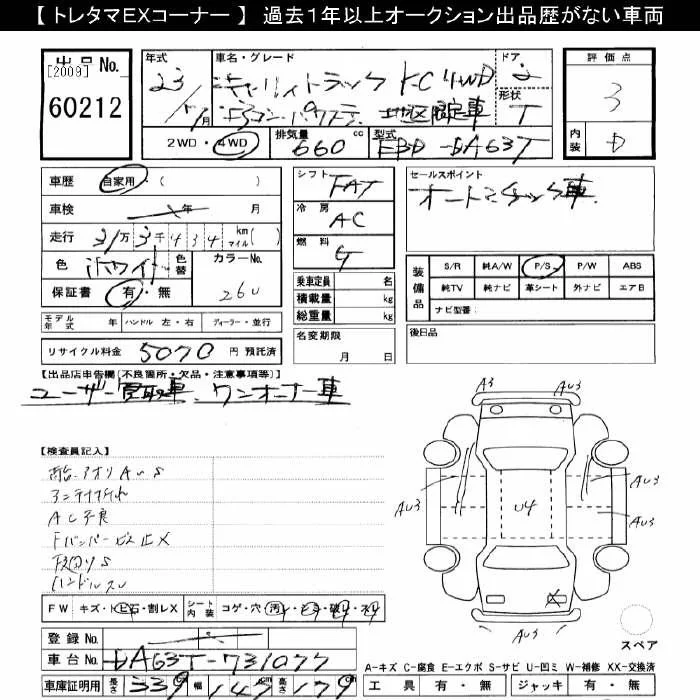 【 トレタマEXコーナー 】 過去1年以上オークション出品歴がない車両
出品 No.
[2009]
60212
年式
23
7月
車名・グレード
キャリイトラック KC 4WD
エアコン パワステ 地区限定車
ドア
2
形状
T
2WD・4WD
排気量
660 cc
型式
EBD-DA63T
評価点
3
内装
D
車歴 自家用・( )
車検 年 月
走行 3万3千434 km マイル( )
色 ホワイト 色替 カラーNo.
保証書 有・無 26U
シフト
FAT
冷房
AC
燃料
G
乗車定員 名
積載量 kg
総重量 kg
名変期限
月 日
セールスポイント
オートマチック車
装備品
S/R 純A/W P/S P/W ABS
純TV 純ナビ 革シート 外ナビ エアB
ナビ型番:
後日品
モデル年式 年 ハンドル 左・右 ディーラー・並行
リサイクル料金 5070 円 預託済
【出品店申告欄(不良箇所・欠品・注意事項等)】
ユーザー買取車、ワンオーナー車
【検査員記入】
荷台、アオリ AUS
アンテナ折れ
AC不良
Fバンパービス止X
ハンドルスレ
A3
AU3
AU3
AU3
U4
AU3
AU3
スペア
FW キズ・ヒビ・石・割レX シート内装 コゲ・穴・汚レ・シミ・破レ・スレ
登録 No.
車台 No. DA63T-731077
車庫証明用 長さ 339 幅 147 高さ 179
A-キズ C-腐食 E-エクボ S-サビ U-凹ミ W-補修 XX-交換済
工具 有・無 ジャッキ 有・無